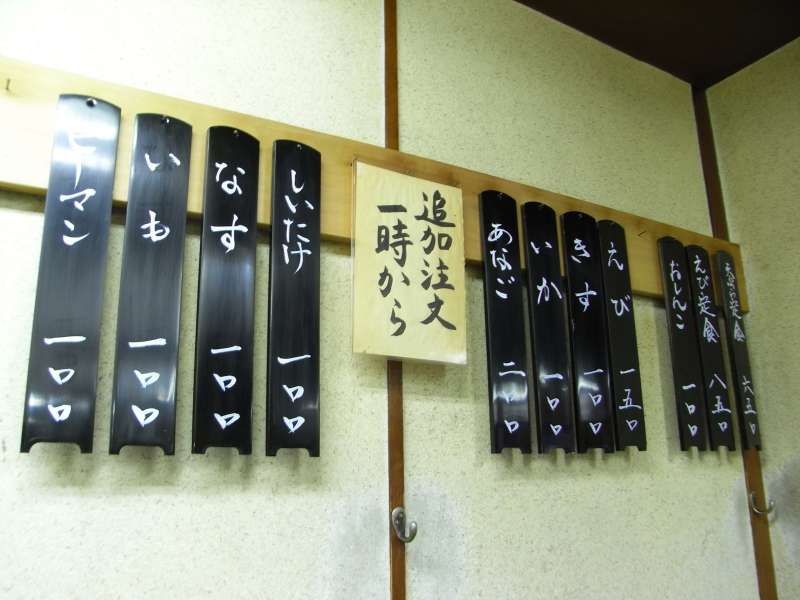 定食 六五〇
えび定食 八五〇
おしんこ 一〇〇
えび 一五〇
きす 一〇〇
いか 一〇〇
あなご 二〇〇
追加注文
一時から
しいたけ 一〇〇
なす 一〇〇
いも 一〇〇
ピーマン 一〇〇